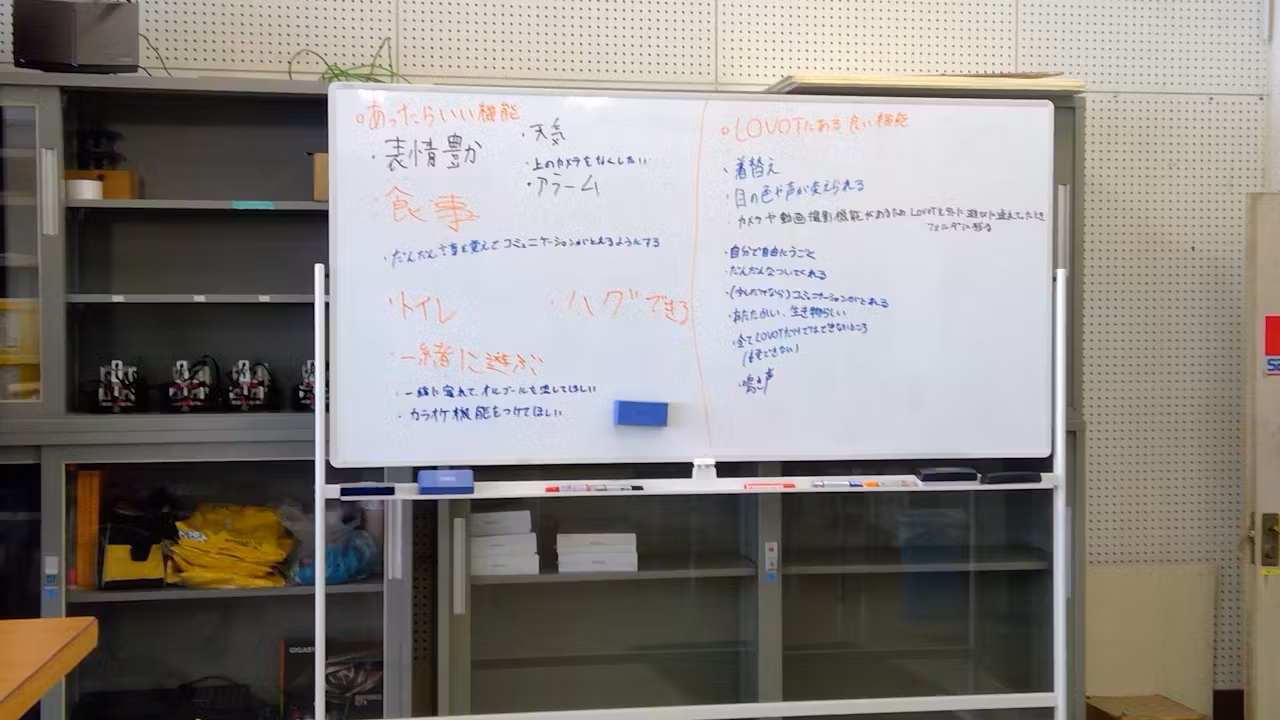 ○あったらいい機能
・表情豊か
・天気
・上のカメラをなくしたい
・アラーム
食事
・だんだん言葉を覚えてコミュニケーションがとれるようにする
・トイレ
・ハグできる
・一緒に遊ぶ
・一緒に寝れて、オルゴールを流してほしい
・カラオケ機能をつけてほしい
○LOVOTにある良い機能
・着替え
・目の色や声が変えられる
・カメラや動画撮影機能があるため LOVOTを外に遊びに連れてったとき
フォルダに残る
・自分で自由にうごく
・だんだんなついてくれる
・(少しだけなら)コミュニケーションがとれる
・あたたかい、生き物らしい
・全てLOVOTだけではできないところ
・鳴き声
GIGABY